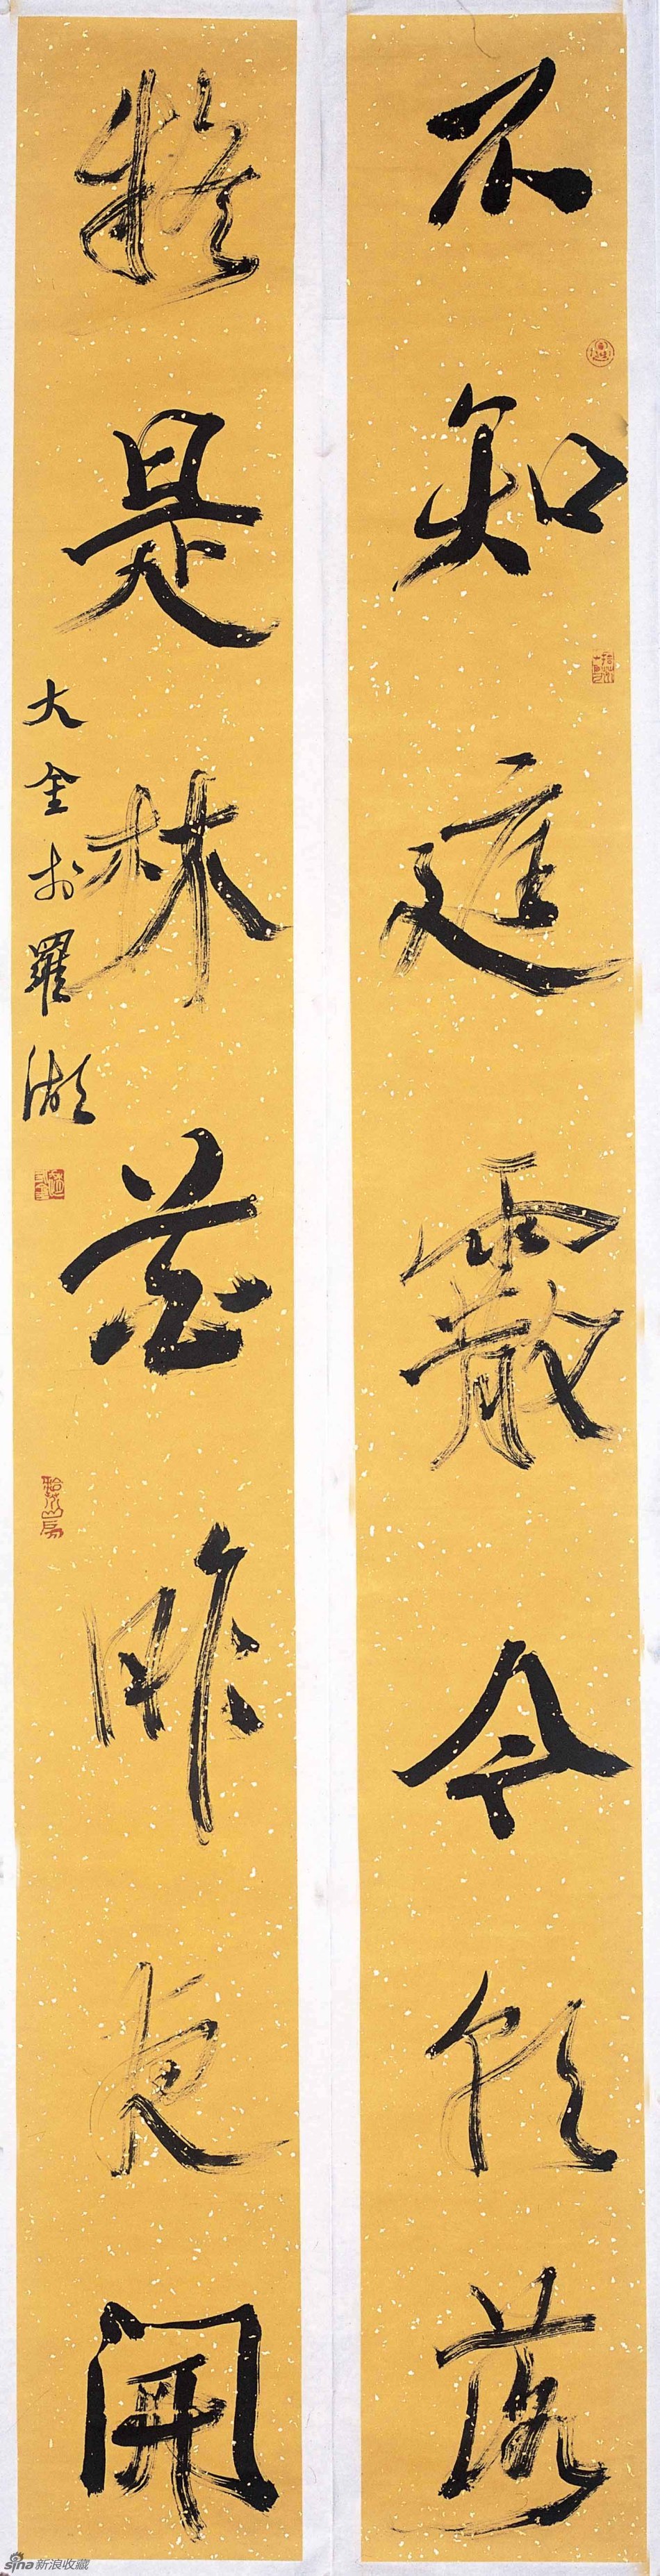 不知庭霰今朝落
疑是林花昨夜開
大金於羅湖
sina新浪收藏